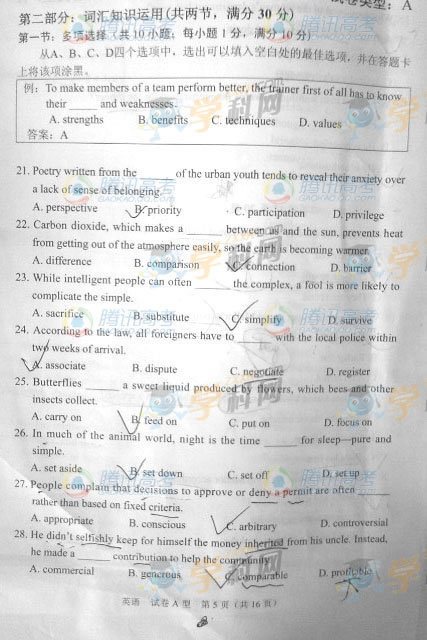 试卷类型：A
第二部分：词汇知识运用(共两节，满分 30 分)
第一节：多项选择（共 10 小题；每小题 1 分，满分 10 分）
从A、B、C、D四个选项中，选出可以填入空白处的最佳选项，并在答题卡
上将该项涂黑。
例：To make members of a team perform better, the trainer first of all has to know
their ______ and weaknesses.
A. strengths B. benefits C. techniques D. values
答案：A
21. Poetry written from the ______ of the urban youth tends to reveal their anxiety over
a lack of sense of belonging.
A. perspective B. priority C. participation D. privilege
22. Carbon dioxide, which makes a ______ between us and the sun, prevents heat
from getting out of the atmosphere easily, so the earth is becoming warmer.
A. difference B. comparison C. connection D. barrier
23. While intelligent people can often ______ the complex, a fool is more likely to
complicate the simple.
A. sacrifice B. substitute C. simplify D. survive
24. According to the law, all foreigners have to ______ with the local police within
two weeks of arrival.
A. associate B. dispute C. negotiate D. register
25. Butterflies ______ a sweet liquid produced by flowers, which bees and other
insects collect.
A. carry on B. feed on C. put on D. focus on
26. In much of the animal world, night is the time ______ for sleep—pure and
simple.
A. set aside B. set down C. set off D. set up
27. People complain that decisions to approve or deny a permit are often ______
rather than based on fixed criteria.
A. appropriate B. conscious C. arbitrary D. controversial
28. He didn't selfishly keep for himself the money inherited from his uncle. Instead,
he made a ______ contribution to help the community.
A. commercial B. generous C. comparable D. profitable
英语 试卷A 型 第 5 页（共 16 页）